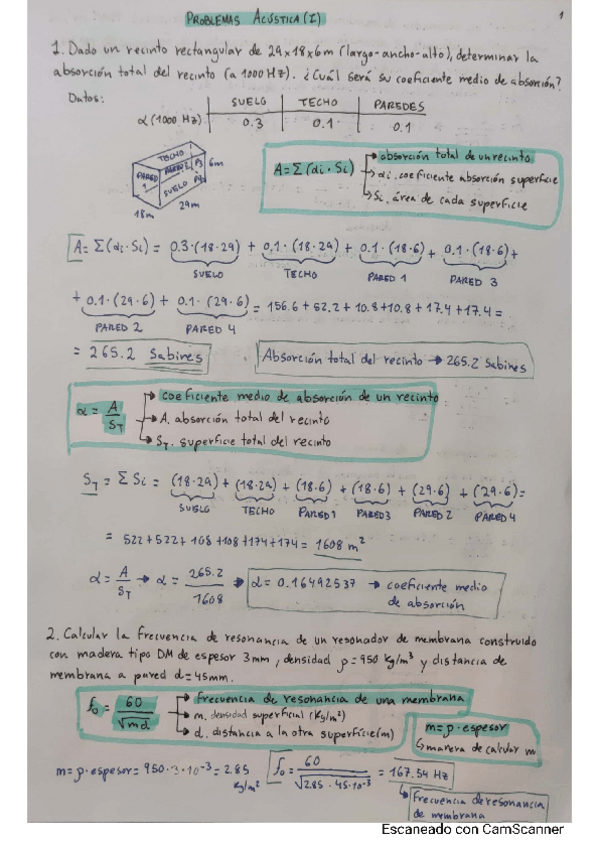 PROBLEMAS ACÚSTICA (I)
1
1. Dado un recinto rectangular de 29x18x6m (largo-ancho-alto), determinar la
absorción total del recinto (a 1000 Hz). ¿Cuál será su coeficiente medio de absorción?
Datos:
SUELO TECHO PAREDES
α (1000 Hz) 0.3 0.1 0.1
TECHO
PARED 1
PARED 2
P3
SUELO
P4
6m
18m
29m
A = Σ(αi · Si)
→ absorción total de un recinto
→ αi. coeficiente absorción superficie
→ Si. área de cada superficie
A = Σ(αi · Si) = 0.3·(18·29) + 0,1·(18·29) + 0.1·(18·6) + 0.1·(18·6) +
SUELO TECHO PARED 1 PARED 3
+ 0.1·(29·6) + 0.1·(29·6) = 156.6 + 52.2 + 10.8 + 10.8 + 17.4 + 17.4 =
PARED 2 PARED 4
= 265.2 Sabines
Absorción total del recinto → 265.2 Sabines
α = A / ST
→ coeficiente medio de absorción de un recinto
→ A. absorción total del recinto
→ ST. superficie total del recinto
ST = Σ Si = (18·29) + (18·29) + (18·6) + (18·6) + (29·6) + (29·6) =
SUELO TECHO PARED 1 PARED 3 PARED 2 PARED 4
= 522 + 522 + 108 + 108 + 174 + 174 = 1608 m²
α = A / ST → α = 265.2 / 1608 → α = 0.16492537 → coeficiente medio
de absorción
2. Calcular la frecuencia de resonancia de un resonador de membrana construido
con madera tipo DM de espesor 3mm, densidad ρ = 950 kg/m³ y distancia de
membrana a pared d = 45mm.
f₀ = 60 / √md
→ frecuencia de resonancia de una membrana
→ m. densidad superficial (kg/m²)
→ d. distancia a la otra superficie (m)
m = ρ · espesor
↳ manera de calcular m
m = ρ · espesor = 950 · 3 · 10⁻³ = 2.85 kg/m²
f₀ = 60 / √2.85 · 45·10⁻³ = 167.54 Hz
↳ frecuencia de resonancia
de membrana
Escaneado con CamScanner